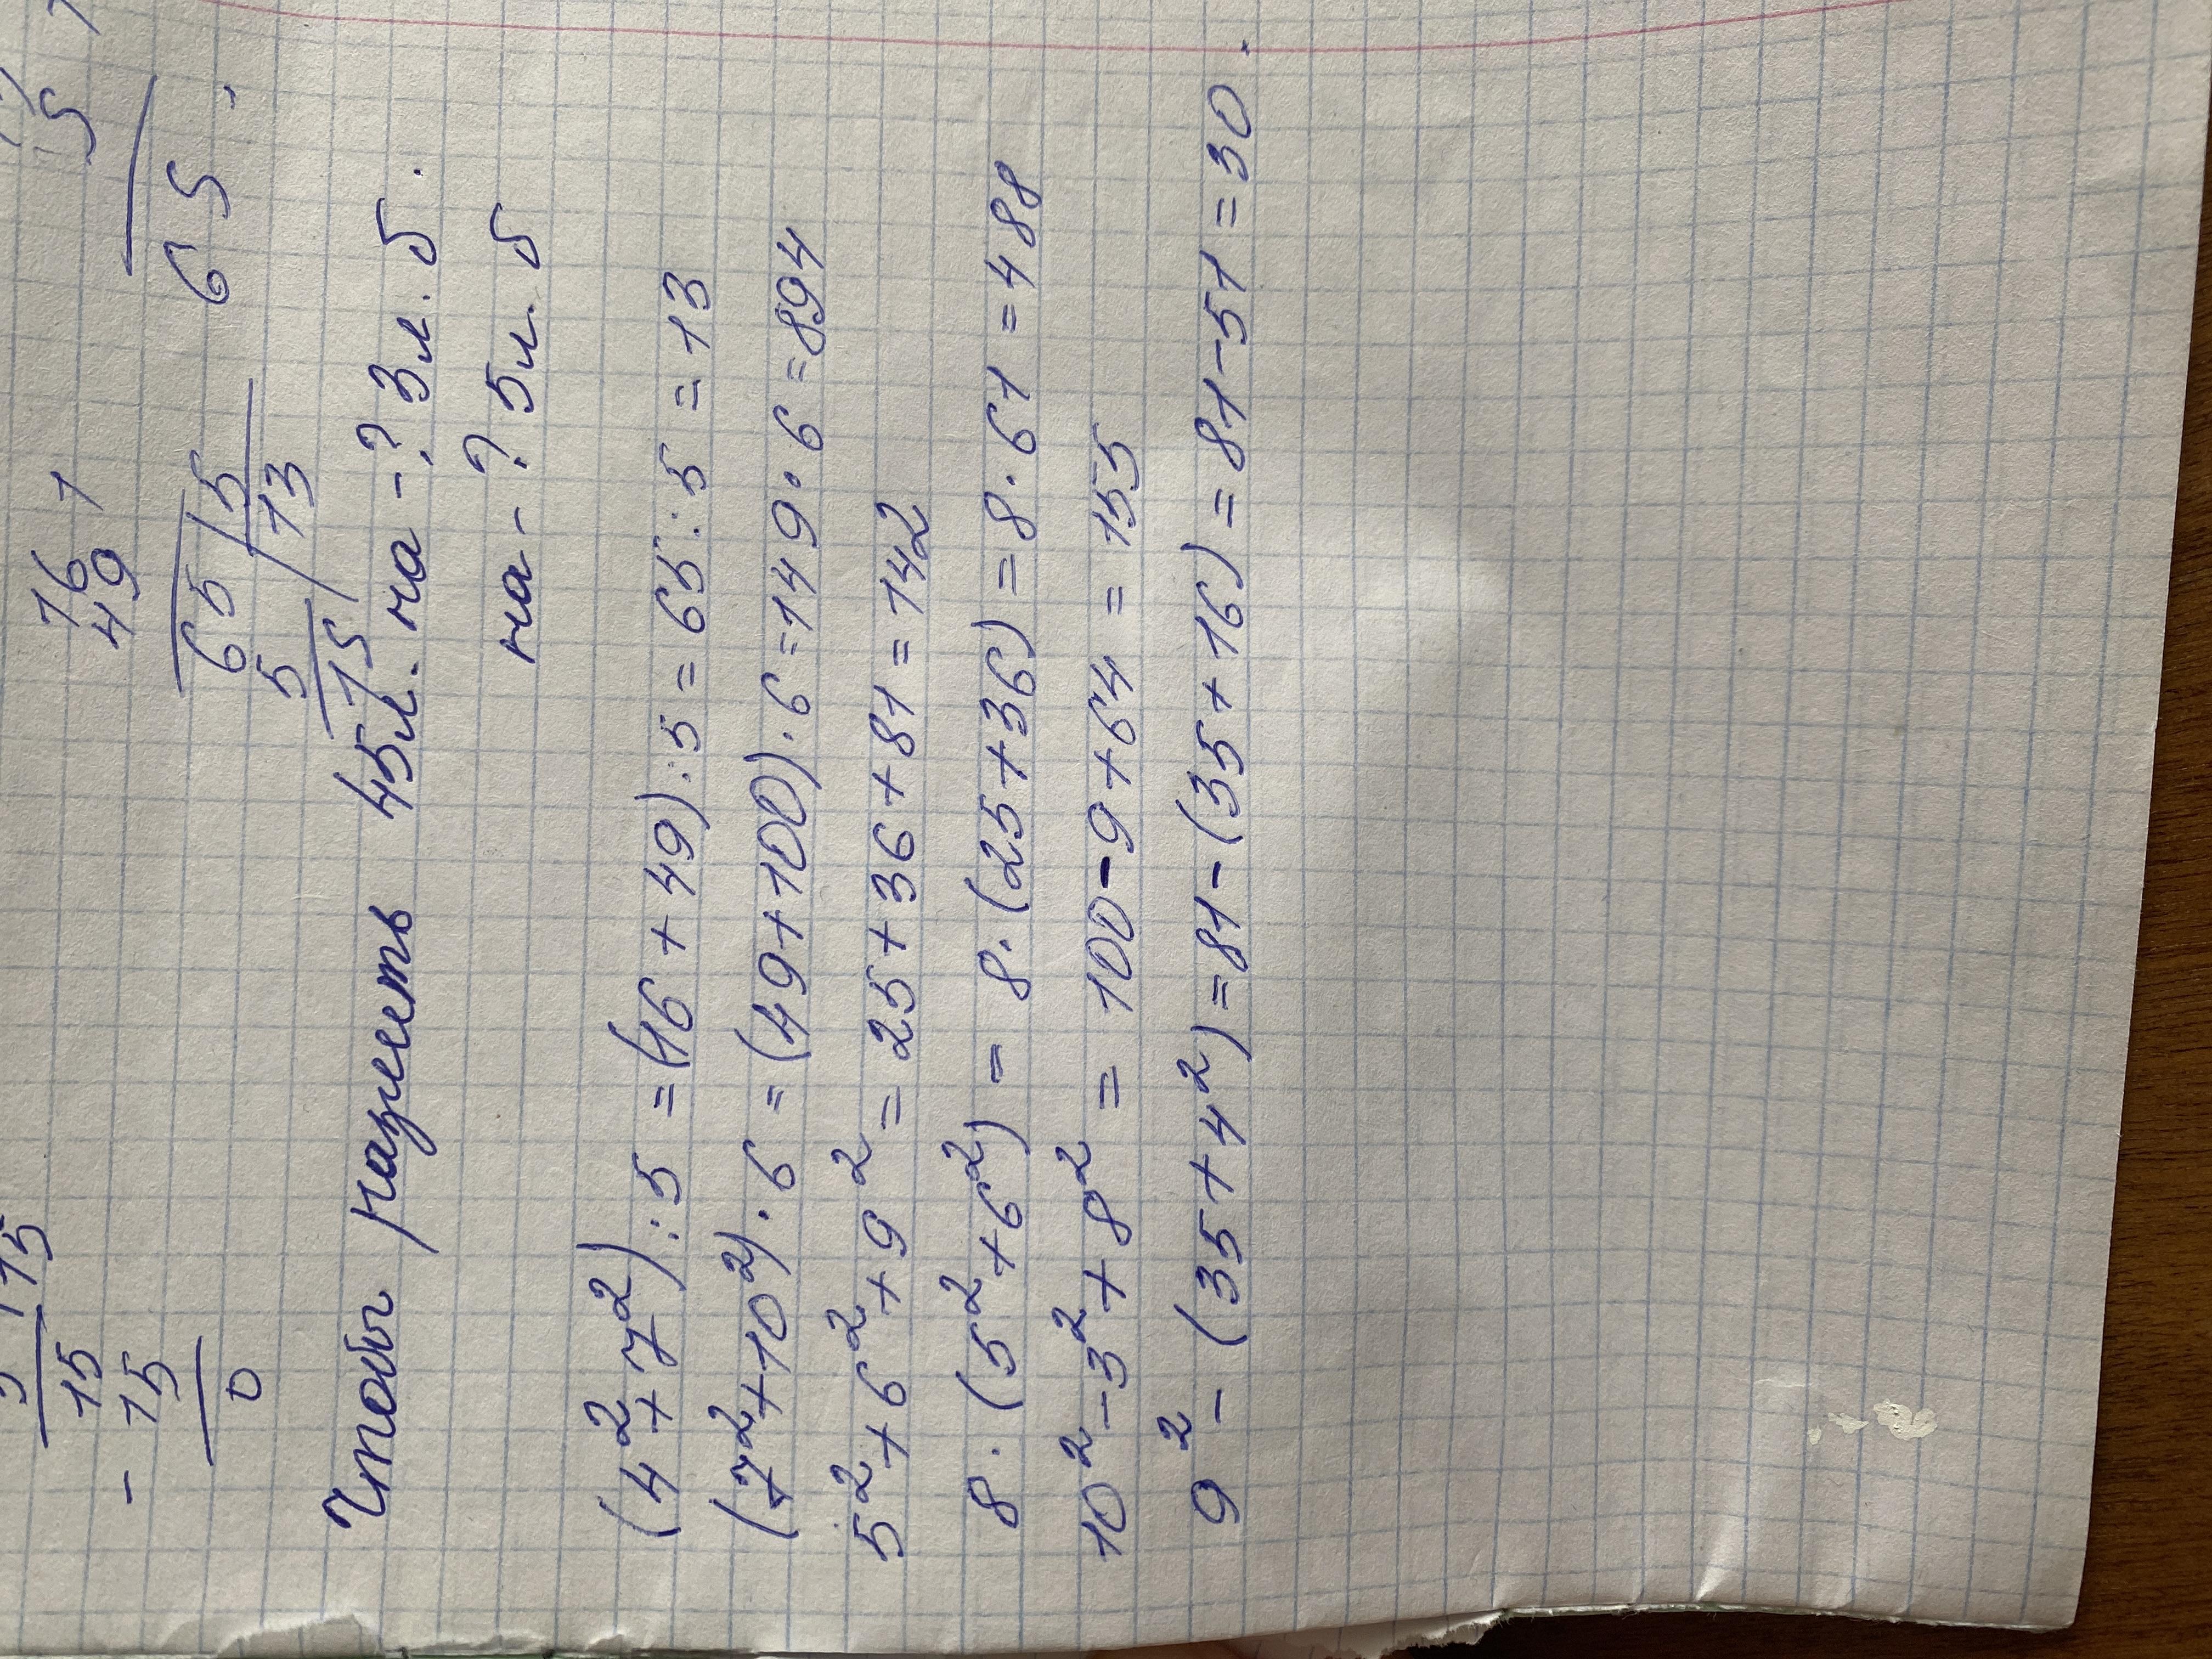 15
15
- 15
0
16
49
65
65 5
5 13
15
Чтобы разлить 45л. на -? 3л. б.
на - ? 5л. б
(4²+7²):5 =(16+49):5 = 65:5 = 13
(7²+10²)·6 =(49+100)·6=149·6=894
5²+6²+9² = 25+36+81=142
8·(5²+6²) = 8·(25+36)=8·61=488
10²-3²+8² = 100-9+64 = 155
9²-(35+4²)=81-(35+16)=81-51=30.